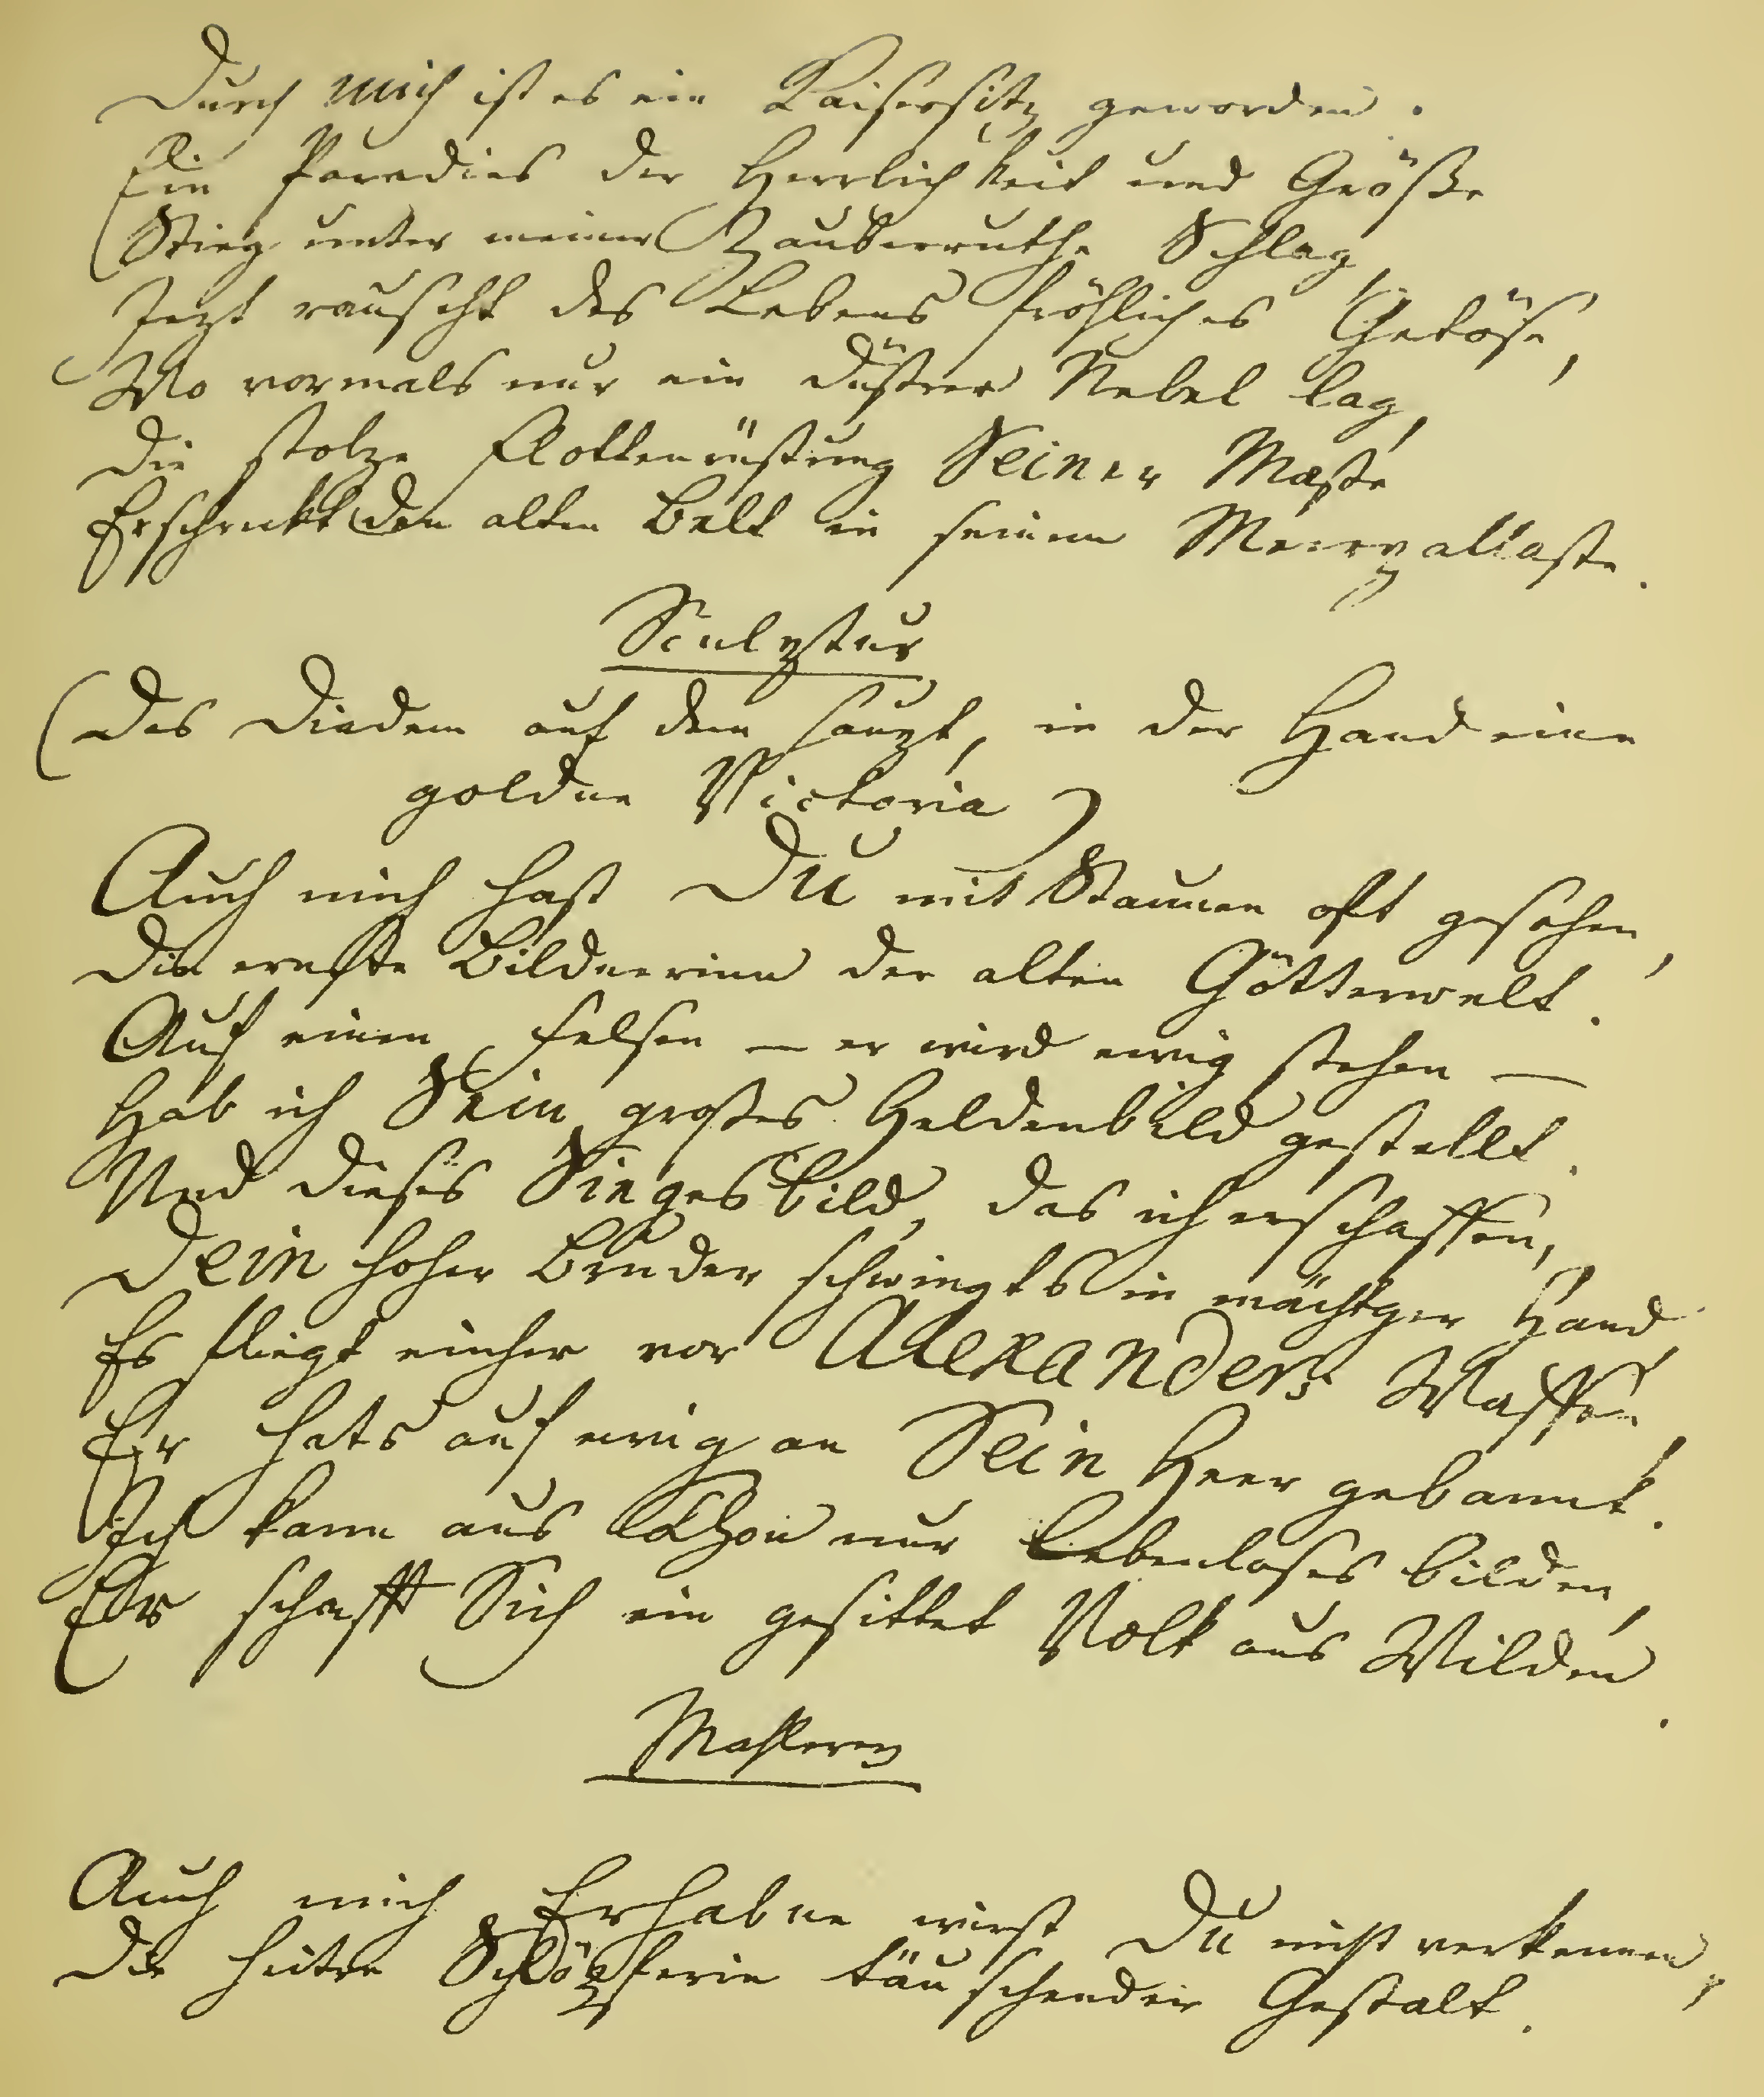 Durch mich ist es ein Kaisersitz geworden.
Ein Paradies der Herrlichkeit und Größe
Stieg unter meiner Zauberruthe Schlag,
Jezt rauscht des Lebens fröhliches Getöse,
Wo vormals nur ein düstrer Nebel lag,
Die stolze Flottenrüstung Seiner Maste
Erschrekt den alten Belt in seinem Meerpallaste.
Sculptur
(Das Diadem auf dem Haupt, in der Hand eine
goldne Victoria)
Auch mich hast Du mit Staunen oft gesehen,
Die ernste Bildnerinn der alten Götterwelt.
Auf einen Felsen — er wird ewig stehen —
Hab ich Sein großes Heldenbild gestellt.
Und dieses Siegesbild, das ich erschaffen,
Dein hoher Bruder schwingts in mächtger Hand
Es fliegt einher vor Alexanders Waffen,
Er hats auf ewig an Sein Heer gebannt.
Ich kann aus Thon nur Lebenloses bilden,
Er schafft Sich ein gesittet Volk aus Wilden.
Mahlerey
Auch mich Erhabne wirst Du nicht verkennen,
Die heitre Schöpferin täuschender Gestalt.